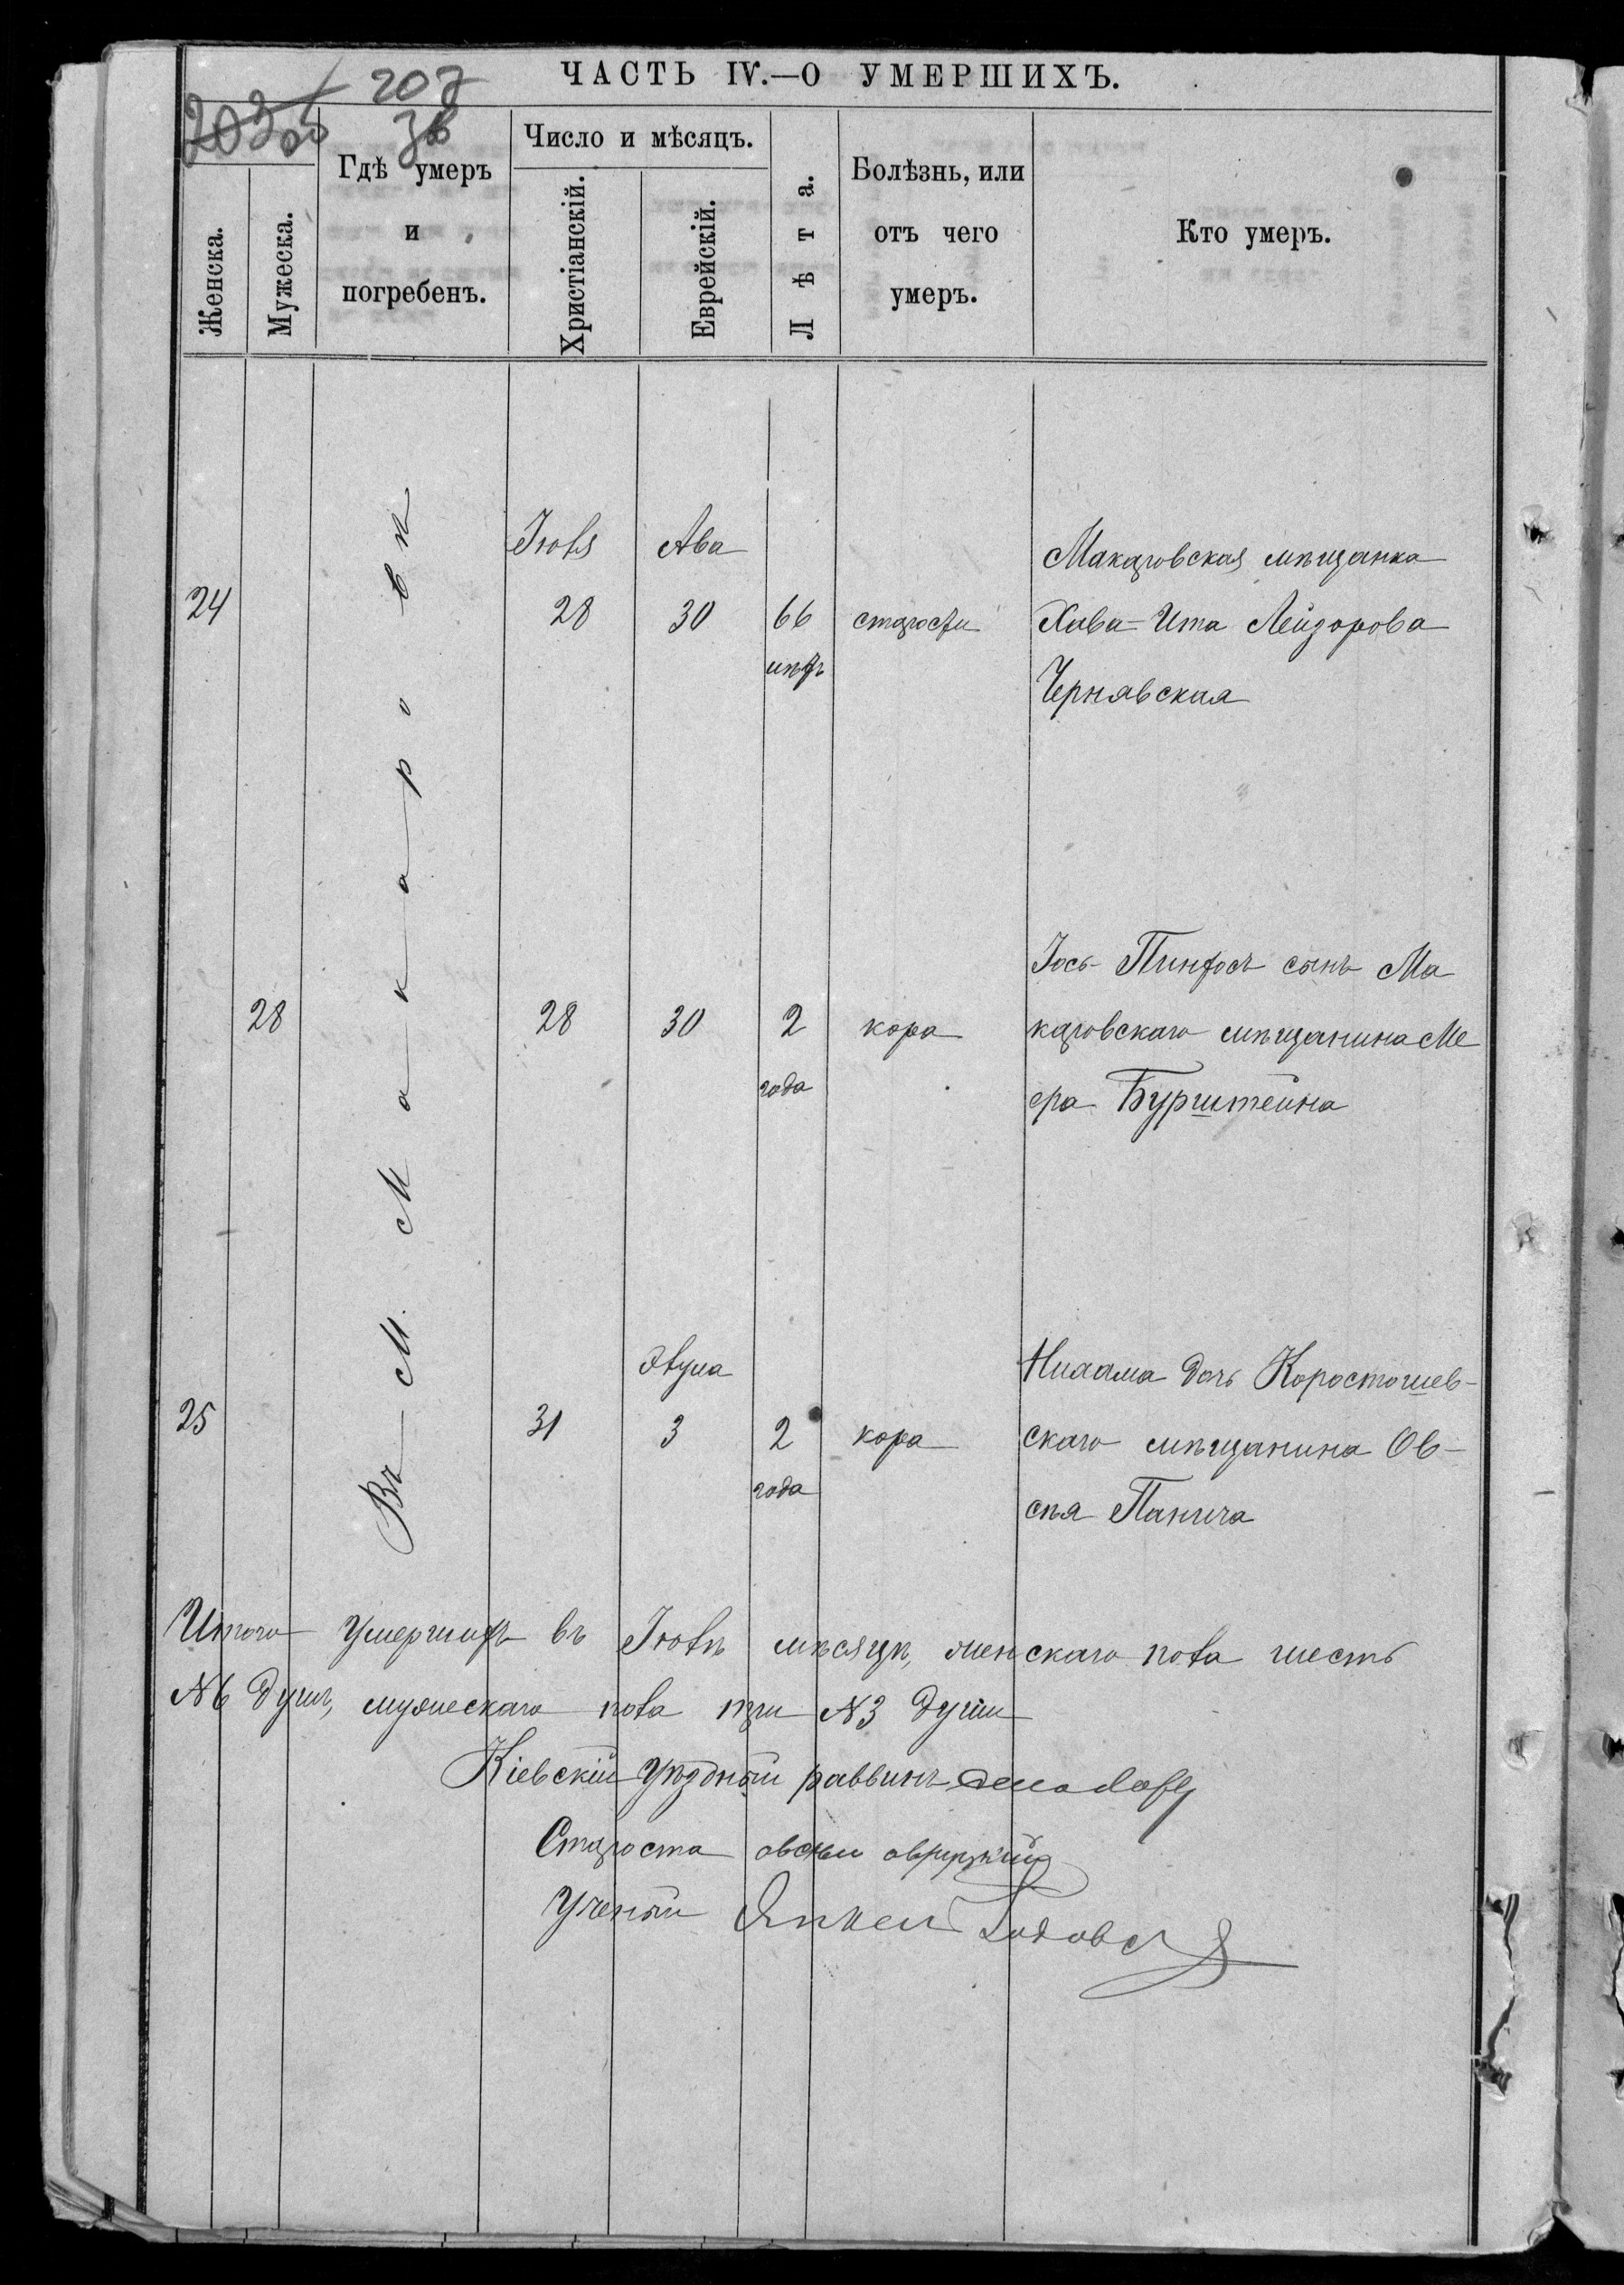 207
203 об
зв
ЧАСТЬ IV.—О УМЕРШИХЪ.
Женска.
Мужеска.
Гдѣ умеръ
и
погребенъ.
Число и мѣсяцъ.
Христіанскій.
Еврейскій.
Лѣта.
Болѣзнь, или
отъ чего
умеръ.
Кто умеръ.
Въ М. Макаровѣ
Іюля Ава
24 28 30 66 старости
лѣтъ
Макаровская мѣщанка
Хава-Ита Лейзорова
Чернявская
28 28 30 2 кора
года
Іось-Пинхосъ сынъ Ма
каровскаго мѣщанина Ме
ера Бурштейна
Элула
25 31 3 2 кора
года
дочь Коростошев-
скаго мѣщанина Ов-
сѣя Панича
Итого умершихъ въ Іюлѣ мѣсяцѣ, женскаго пола шесть
№6 душъ, мужескаго пола три №3 души
Кіевскій Уѣздный раввинъ
Староста
Ученый Янкель